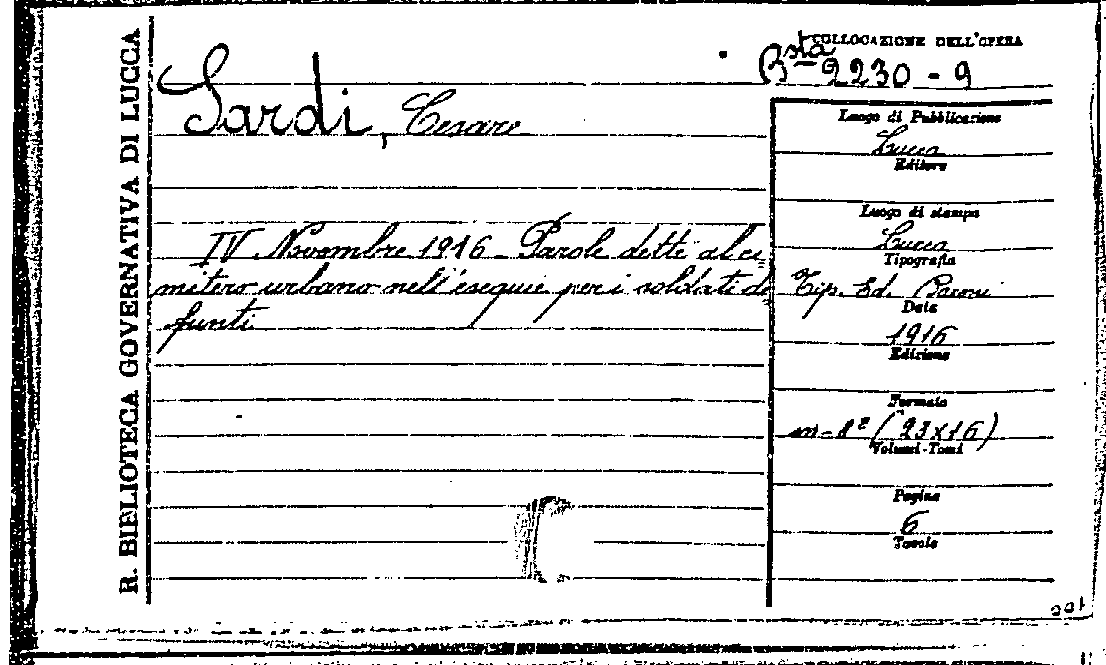 R. BIBLIOTECA GOVERNATIVA DI LUCCA
COLLOCAZIONE DELL'OPERA
Bsta 2230 - 9
Sardi, Cesare
IV Novembre 1916 - Parole dette al ci=
mitero urbano nell'esequie per i soldati de
funti
Luogo di Pubblicazione
Lucca
Editore
Luogo di stampa
Lucca
Tipografia
Tip. Ed. Baroni
Data
1916
Edizione
Formato
in-8º (23x16)
Volumi-Tomi
Pagine
6
Tavole